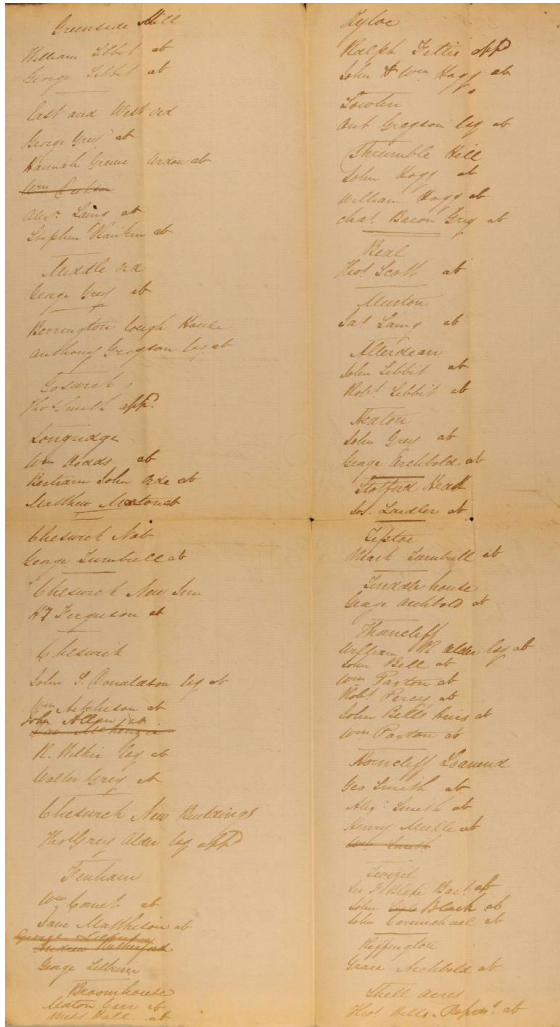 Greenside Mill
William Tebbit at
George Tebbit at
East and West Ord
George Grey at
Hannah Greive Ardon at
Alexr Laing at
Stephen Rankin at
Middle Ord
George Grey at
Berrington Lough House
Anthony Gregson Esq at
Goswick
Thos Smith app.
Longridge
Wm Dodds at
Bertram John Orde at
Matthew at
Cheswick Nab
George Turnbull at
Cheswick New Inn
Ferguson at
Cheswick
John S. Donaldson Esq at
Wm Aitcheson at
John Allan jr at
R. Wilkie Esq at
Walter Grey at
Cheswick New Buildings
Thos Grey Alder Esq app
Fenham
Wm at
Jane Mattheson at
George
Andrew Rutherford
George
Broomhouse
Carr at
Miss Hall at
Kyloe
Ralph app
John & Wm Hogg at
Lowlin
Ant Gregson Esq at
Thrumble Hill
John Hogg at
William Hogg at
Chas Bacon Grey at
Beal
Thos Scott at
Murton
Jas Laing at
Allerdean
John Tebbit at
Robt Tebbit at
Heaton
John Grey at
George Archbold at
Stotford Heath
Jos Landler at
Tiptoe
Mark Turnbull at
Tindle house
George Archbold at
Thorncliff
William M. Alder Esq at
John Bell at
Wm Paxton at
Robt Percy at
John Bells heirs at
Wm Paxton at
Horncliff Loanend
Geo Smith at
Alexr Smith at
Henry at
Wm Smith
Twizel
Sir F Blake Bart app
John Black at
John Carmichael at
Riffington
Grace Archbold at
Shell acres
Thos at